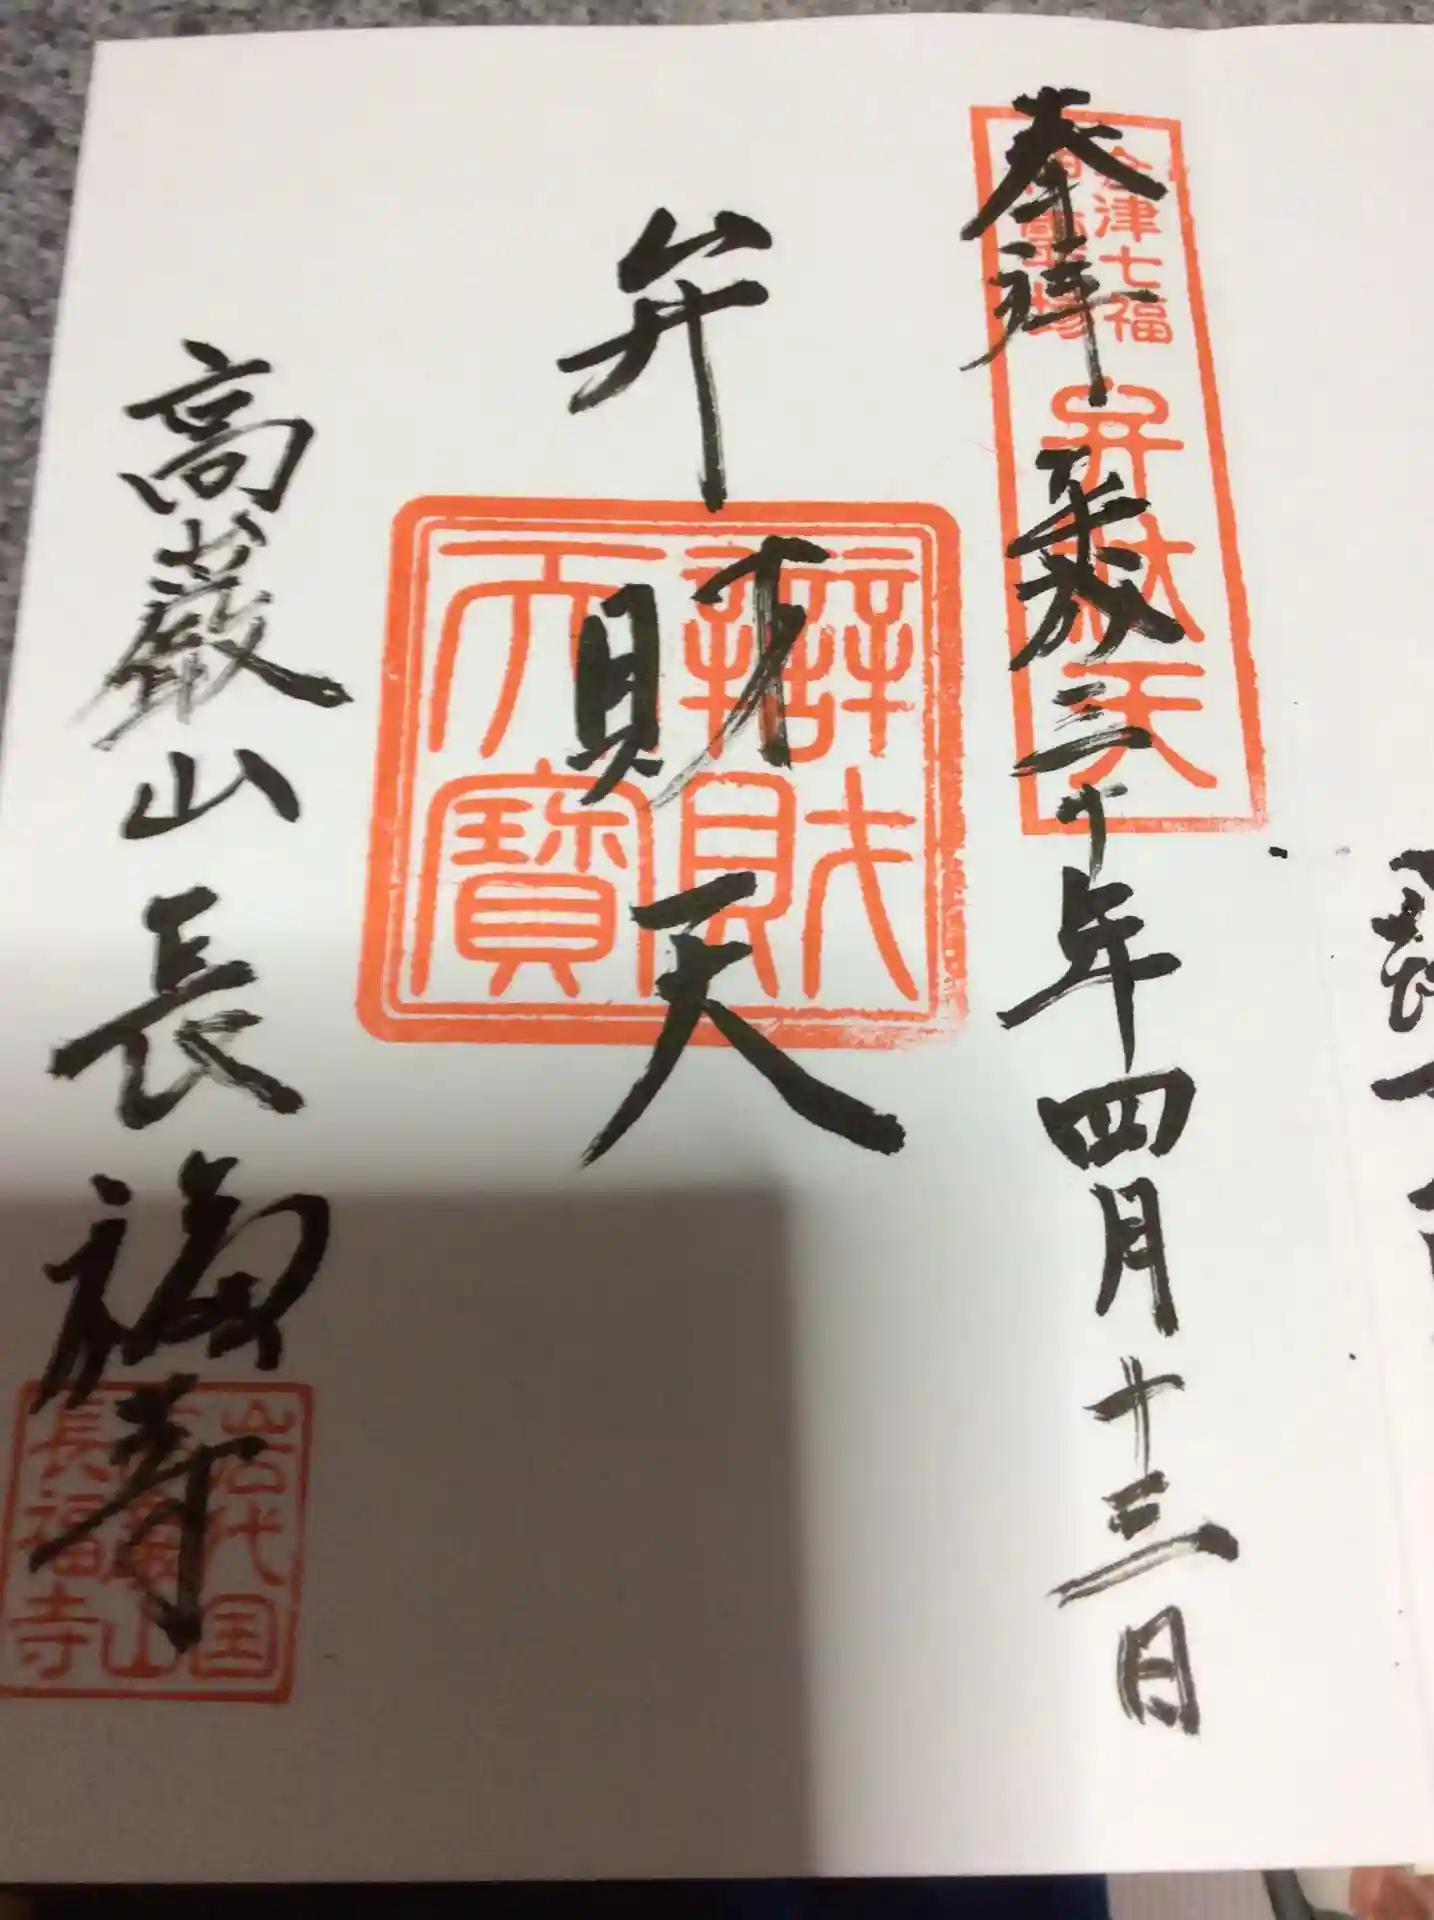 奉拝 平成三十年四月十三日
会津七福
神霊場
弁財天
弁財天
辯財
天寶
高巌山長福寺
岩代国
高巌山
長福寺